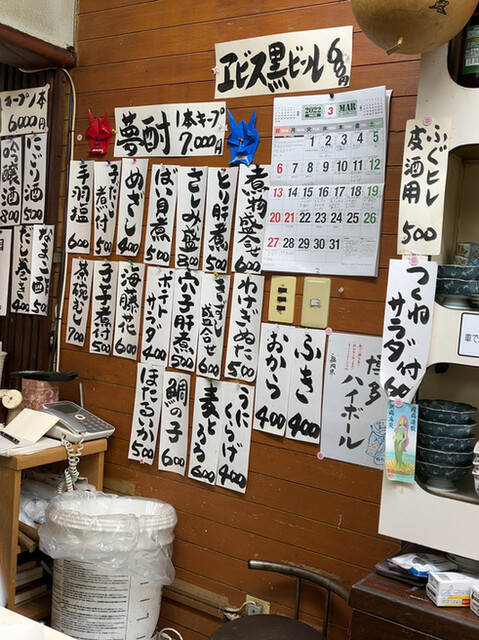 エビス黒ビール 600円
夢酎 1本キープ 7,000円
キープ1本
6000円
にごり酒 500
吟醸酒 800
なまこ酢 500
だし巻き 400
手羽塩 600
子だし煮付 500
めざし 400
ばい貝煮 500
さしみ盛 800
とり肝煮 500
煮物盛合 600
茶碗むし 700
子芋煮付 400
海藤花 600
ポテトサラダ 400
穴子肝煮 500
きずし盛合せ 600
わけぎぬた 500
おから 400
ふき 400
ほたるいか 500
鯛の子 600
麦とろろ 500
うにくらげ 400
2022 3 MAR
1 2 3 4 5
6 7 8 9 10 11 12
13 14 15 16 17 18 19
20 21 22 23 24 25 26
27 28 29 30 31
ふぐヒレ
皮酒用 500
つくね付
サラダ 600
博多
ハイボール
車で